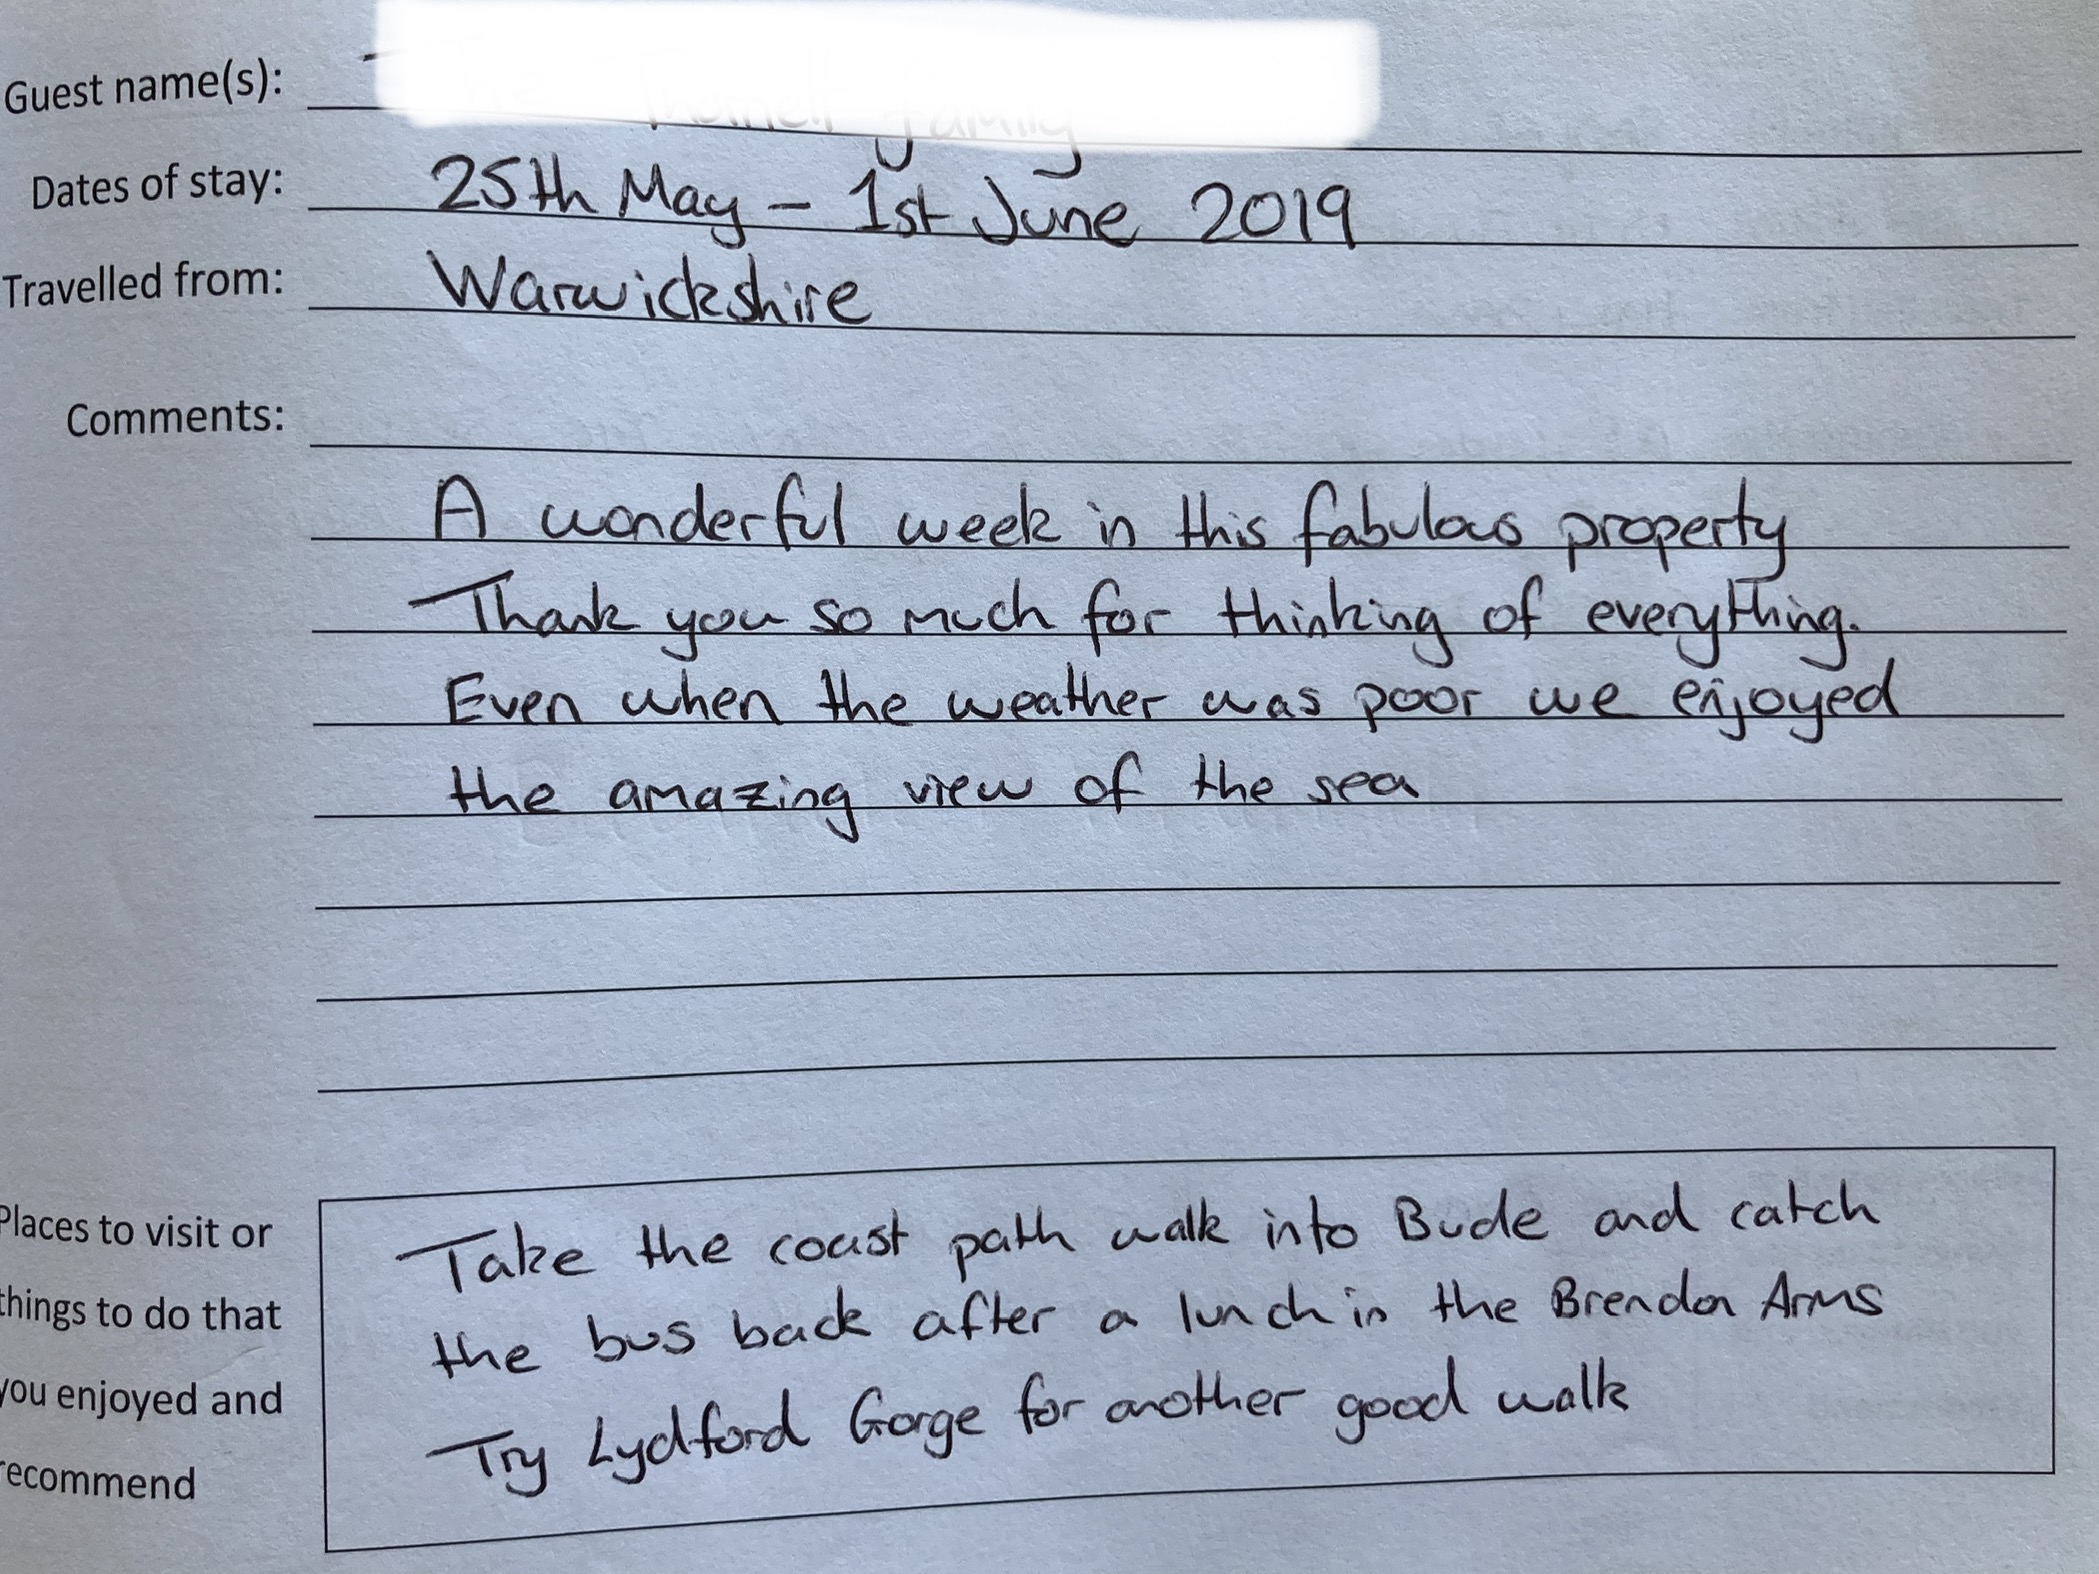 Guest name(s):
Dates of stay: 25th May – 1st June 2019
Travelled from: Warwickshire
Comments:
A wonderful week in this fabulous property
Thank you so much for thinking of everything.
Even when the weather was poor we enjoyed
the amazing view of the sea
Places to visit or
things to do that
you enjoyed and
recommend
Take the coast path walk into Bude and catch
the bus back after a lunch in the Brendon Arms
Try Lydford Gorge for another good walk